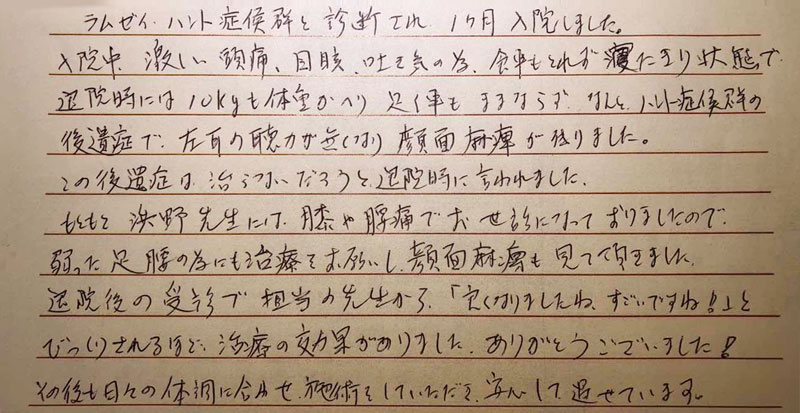 ラムゼイ・ハント症候群と診断され、1ヶ月入院しました。
入院中、激しい頭痛、目眩、吐き気の為、食事もとれず寝たきり状態で
退院時には10kgも体重がへり歩く事もままならず、なんと、ハント症候群の
後遺症で、左耳の聴力が無くなり顔面麻痺が残りました。
この後遺症は、治らないだろうと、退院時に言われました。
もともと浜野先生には、膝や腰痛でお世話になっておりましたので、
弱った足腰の為にも治療をお願いし、顔面麻痺も見て頂きました。
退院後の受診で担当の先生から、「良くなりましたね、すごいですね!」と
びっくりされるほど、治療の効果がありました。ありがとうございました!
その後も日々の体調に合わせ、施術をしていただき、安心して過せています。